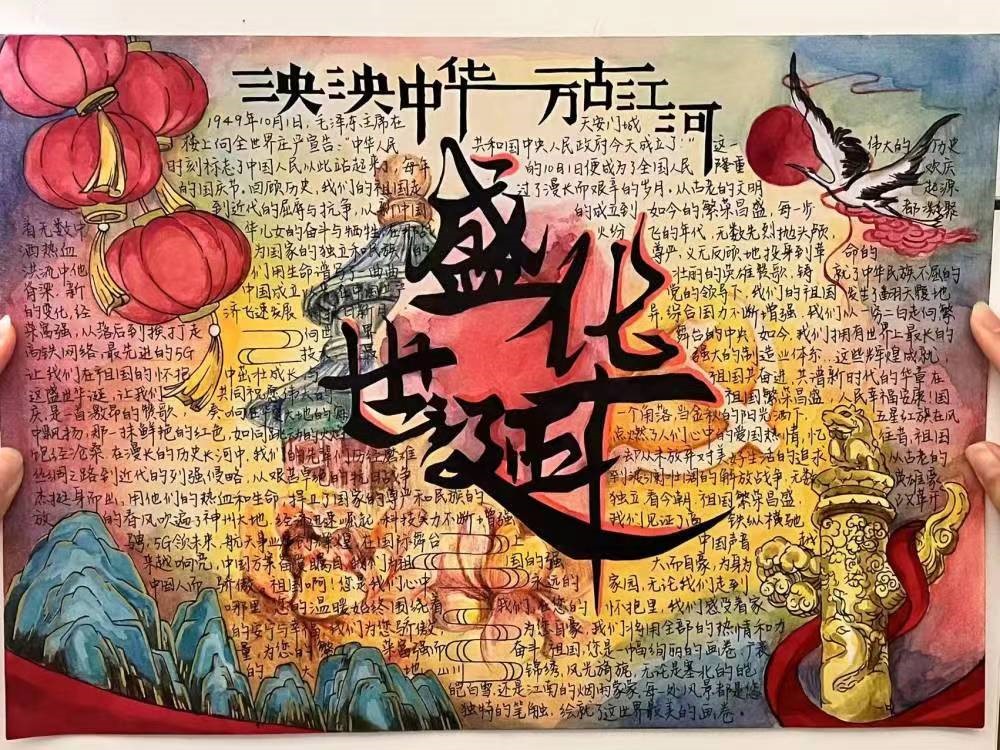 泱泱中华 万古江河
盛世华诞
1949年10月1日,毛泽东主席在 天安门城
楼上向全世界庄严宣告:“中华人民 共和国中央人民政府今天成立了!”这一 伟大的 历史
时刻标志了中国人民从此站起来了,每年 的10月1日便成为了全国人民 隆重 欢庆
的国庆节。回顾历史,我们的祖国走 过了漫长而艰辛的岁月,从古老的文明 起源
到近代的屈辱与抗争,从新中国 的成立到 如今的繁荣昌盛,每一步 都凝聚
着无数中 华儿女的奋斗与牺牲 火纷 飞的年代,无数先烈抛头颅,
洒热血 为国家的独立和民族 的 尊严 义无反顾地投身到革 命的
洪流中他 们用生命谱 壮丽的英雄赞歌,铸 就了中华民族不屈的
脊梁。新 中国成立 党的领导下,我们的祖国 发生了翻天覆地
的变化,经 济飞速发展 异,综合国力不断增强,我们从一穷二白走向繁
荣富强,从落后到挨打走 向世 舞台的中央,如今,我们拥有世界上最长的
高铁网络,最先进的5G 技 强大的制造业体系,这些辉煌成就,
让我们在祖国的怀抱 中茁壮成长 祖国共奋进,共谱新时代的华章在
这盛世华诞,让我们 共同祝愿伟大的 祖国繁荣昌盛,人民幸福安康!国
庆是一首激昂的赞歌, 奏响在 天地的每 一个角落,当金秋的阳光洒下, 五星红旗在风
中飘扬,那一抹鲜艳的红色,如同跳动的 点燃了人们心中的爱国热情,忆 往昔,祖国
饱经沧桑,在漫长的历史长河中,我们的先辈们历经磨难 却从未放弃对美好生活的追求 从古老的
丝绸之路到近代的列强侵略,从艰苦卓绝的抗日战争 到波澜壮阔的解放战争,无数 英雄豪
杰挺身而出,用他们的热血和生命,捍卫了国家的尊严和民族的 独立看今朝,祖国繁荣昌盛 改革开
放 的春风吹遍了神州大地,经济迅速崛起,科技实力不断增强 我们见证了高 铁纵横驰
骋,5G领未来,航天事业 辉煌,在国际舞台 上 中国声音 越
来越响亮,中国方案备受瞩目,我们为祖 国的强 大而自豪,为身为
中国人而 骄傲 祖国啊!您是我们心中 永远的 家园,无论我们走到
哪里,您的温暖始终围绕着 我们,在您的 怀抱里,我们感受着家
的安宁与幸福,我们为您骄傲, 为您自豪,我们将用全部的热情和力
量,为您的繁 荣富强而 奋斗,祖国,您是一幅绚丽的画卷,广袤
的 大 地 山川 锦绣,风光旖旎,无论是塞北的皑
皑白雪,还是江南的烟雨蒙蒙,每一处风景都是您
独特的笔触,绘就了这世界最美的画卷。